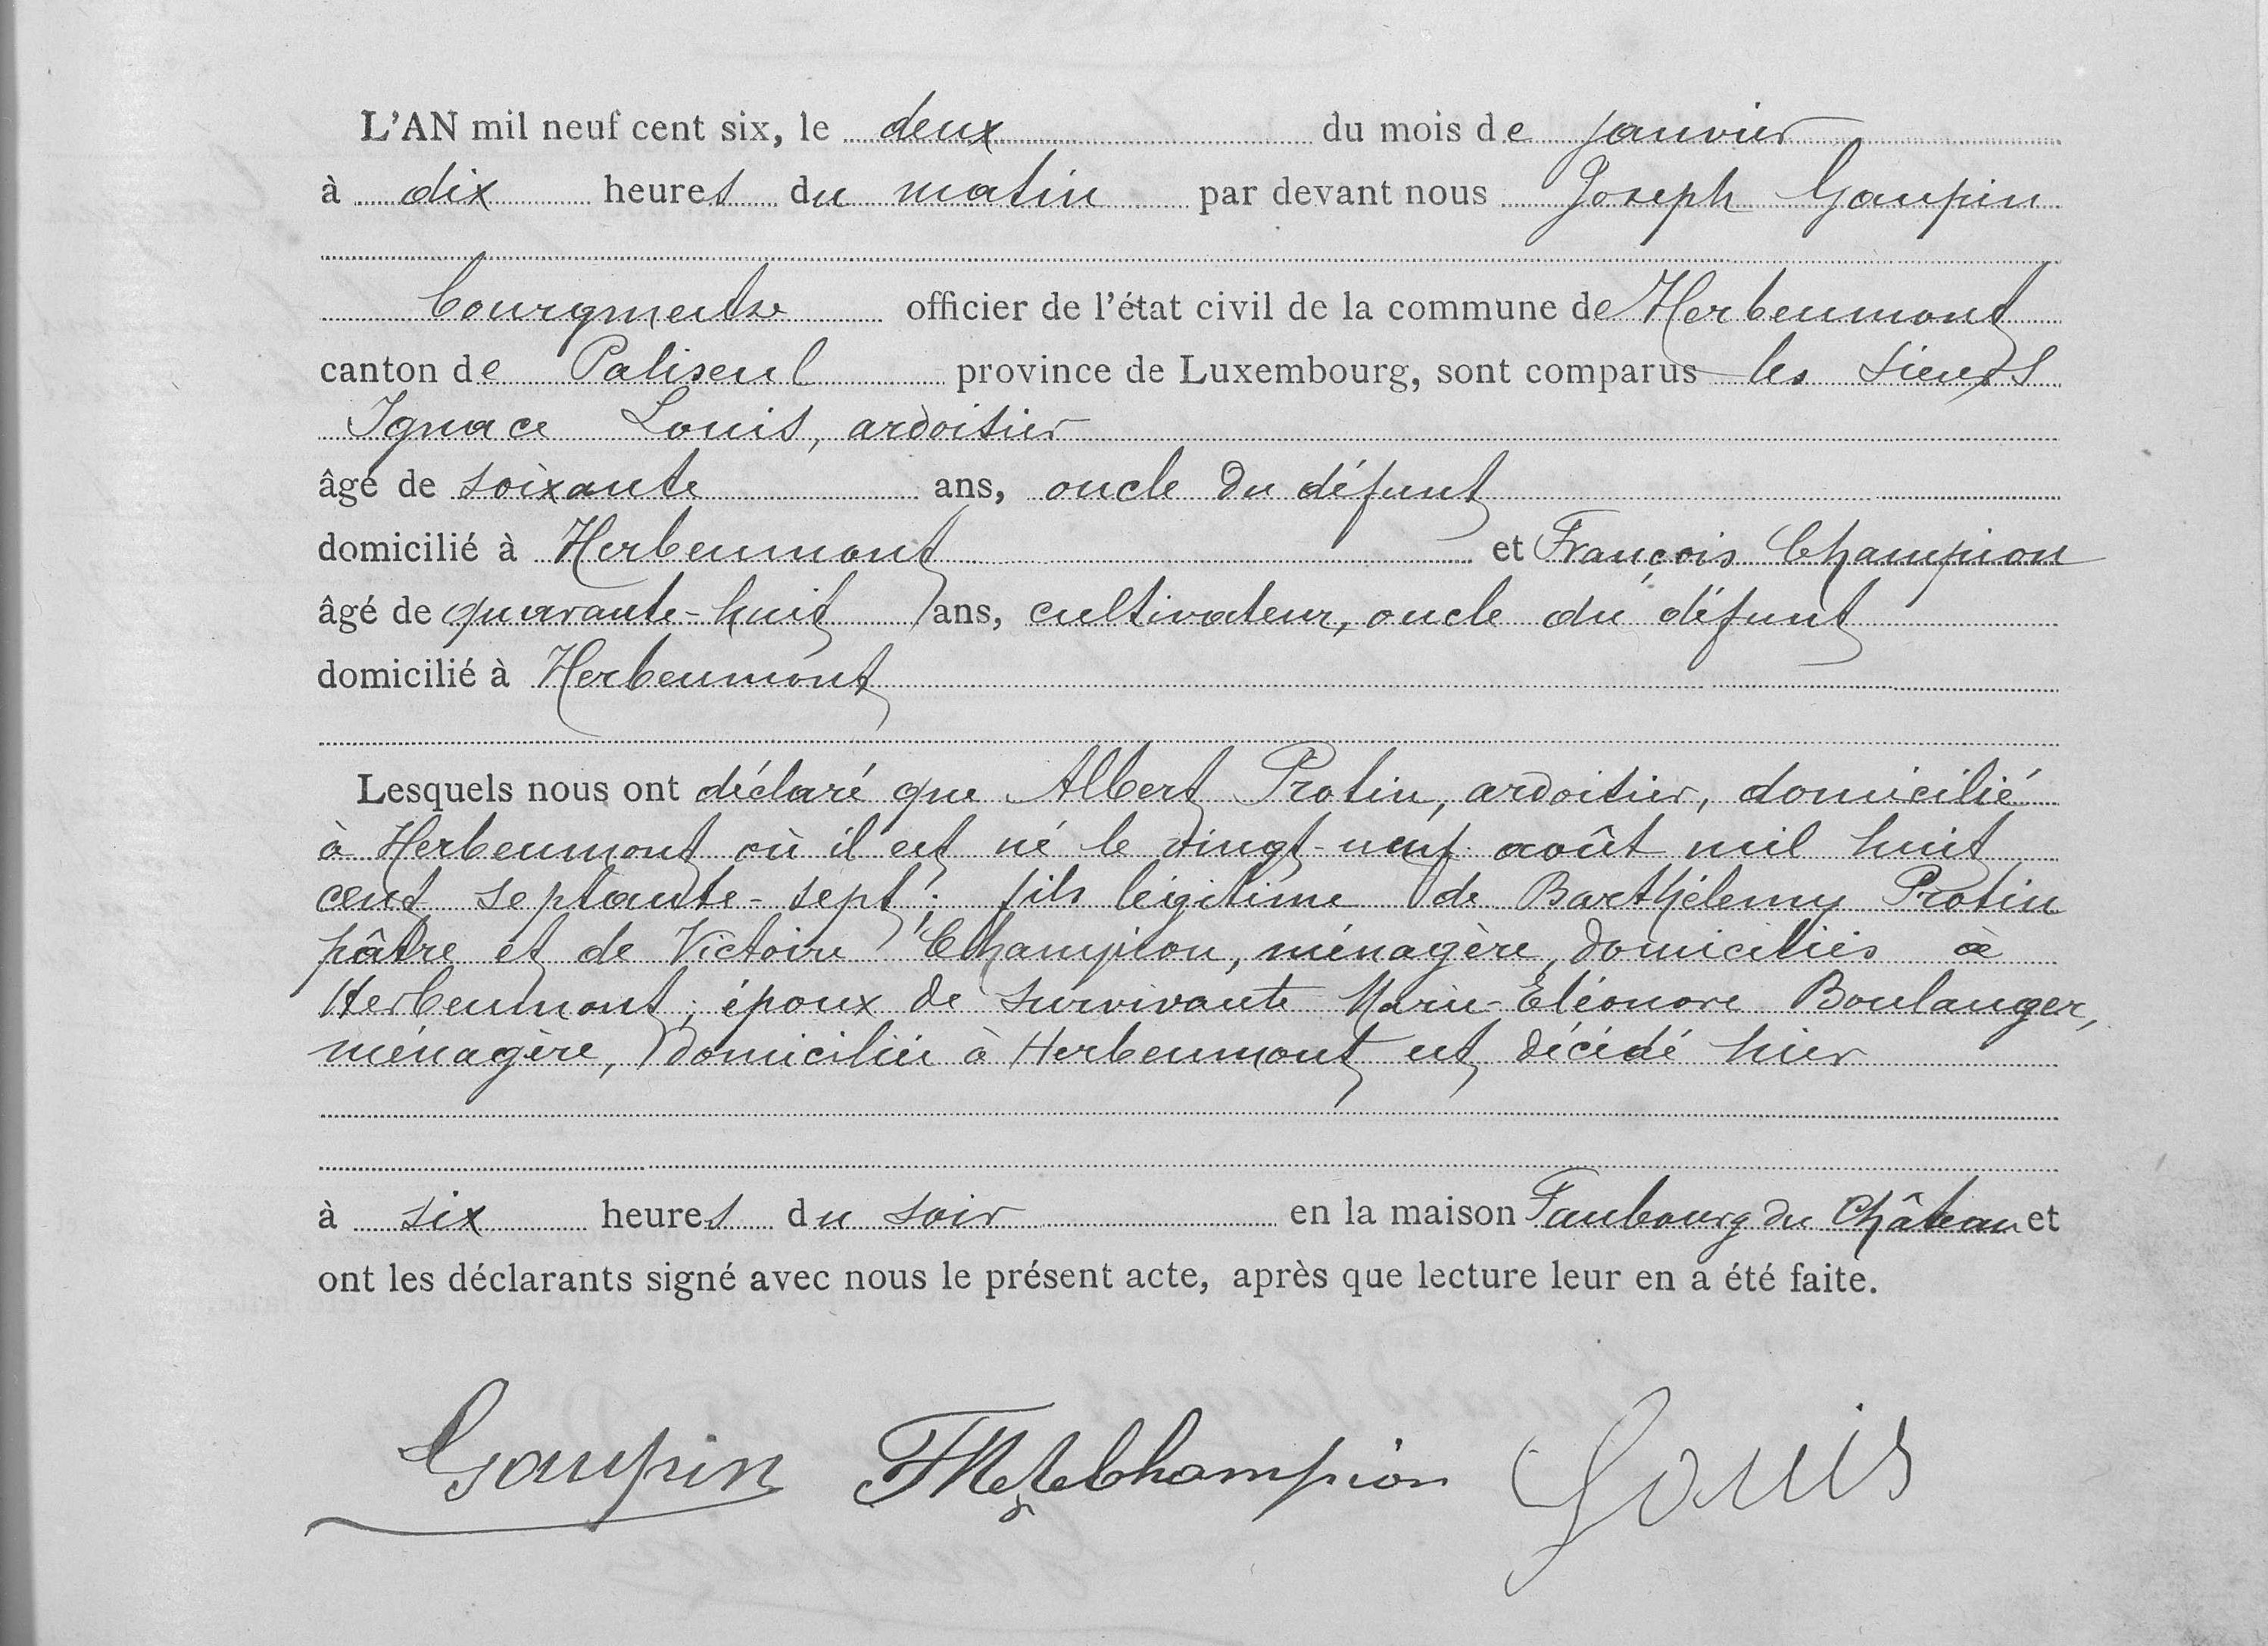 L'AN mil neuf cent six, le deux du mois de janvier
à dix heures du matin par devant nous Joseph Gaupin
bourgmestre officier de l'état civil de la commune de Herbeumont
canton de Paliseul province de Luxembourg, sont comparus les sieurs
Ignace Louis, ardoisier
âgé de soixante ans, oncle du défunt
domicilié à Herbeumont et François Champion
âgé de quarante-huit ans, cultivateur, oncle du défunt
domicilié à Herbeumont
Lesquels nous ont déclaré que Albert Protin, ardoisier, domicilié
à Herbeumont où il est né le vingt-neuf août mil huit
cent septante-sept; fils légitime de Barthélemy Protin
pâtre et de Victoire Champion, ménagère, domiciliés à
Herbeumont; époux de survivante Marie-Eléonore Boulanger,
ménagère, domiciliée à Herbeumont est décédé hier
à six heures du soir en la maison Faubourg du Château et
ont les déclarants signé avec nous le présent acte, après que lecture leur en a été faite.
Gaupin Champion Louis